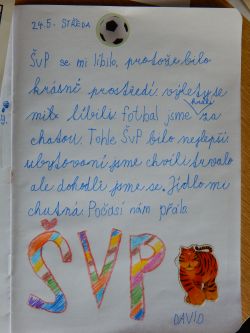 24.5. STŘEDA
ŠVP se mi líbilo, protože bilo
krásné prostředí. výlety se
mi líbili. Fotbal jsme hráli za
chatou. Tohle ŠVP bilo nejlepší
ubytovaní jsme chvíli trvalo
ale dohodli jsme se. Jídlo mi
chutná. Počasí nám přálo
ŠVP
DAVID